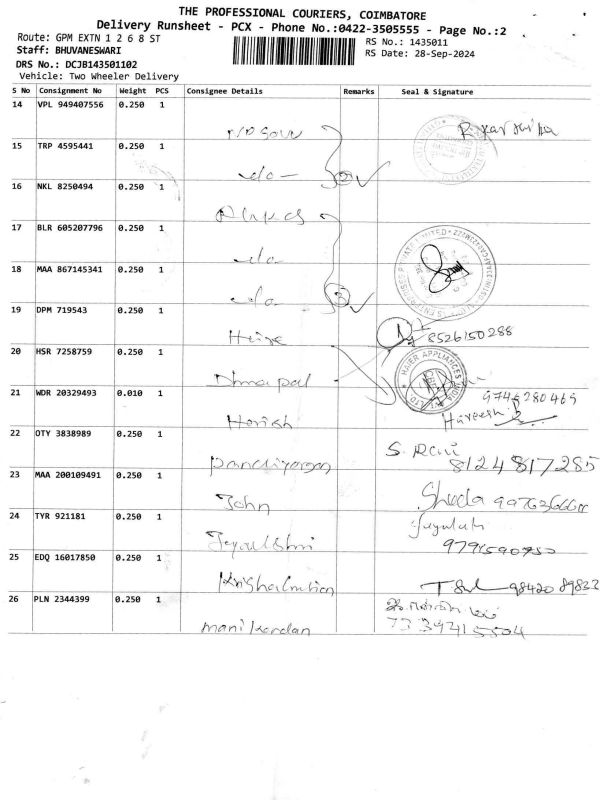 THE PROFESSIONAL COURIERS, COIMBATORE
Delivery Runsheet - PCX - Phone No.:0422-3505555 - Page No.:2
Route: GPM EXTN 1 2 6 8 ST
RS No.: 1435011
Staff: BHUVANESWARI
RS Date: 28-Sep-2024
DRS No.: DCJB143501102
Vehicle: Two Wheeler Delivery
S No Consignment No Weight PCS Consignee Details Remarks Seal & Signature
14 VPL 949407556 0.250 1
15 TRP 4595441 0.250 1
do
16 NKL 8250494 0.250 1
17 BLR 605207796 0.250 1
do
18 MAA 867145341 0.250 1
do
19 DPM 719543 0.250 1
8526150288
20 HSR 7258759 0.250 1
HAIER APPLIANCES
Dhnapal
21 WDR 20329493 0.010 1
9746280469
Hareesh
Harish
22 OTY 3838989 0.250 1
S. Rani
8124817285
23 MAA 200109491 0.250 1
John
24 TYR 921181 0.250 1
25 EDQ 16017850 0.250 1
98420 89832
26 PLN 2344399 0.250 1
manikandan